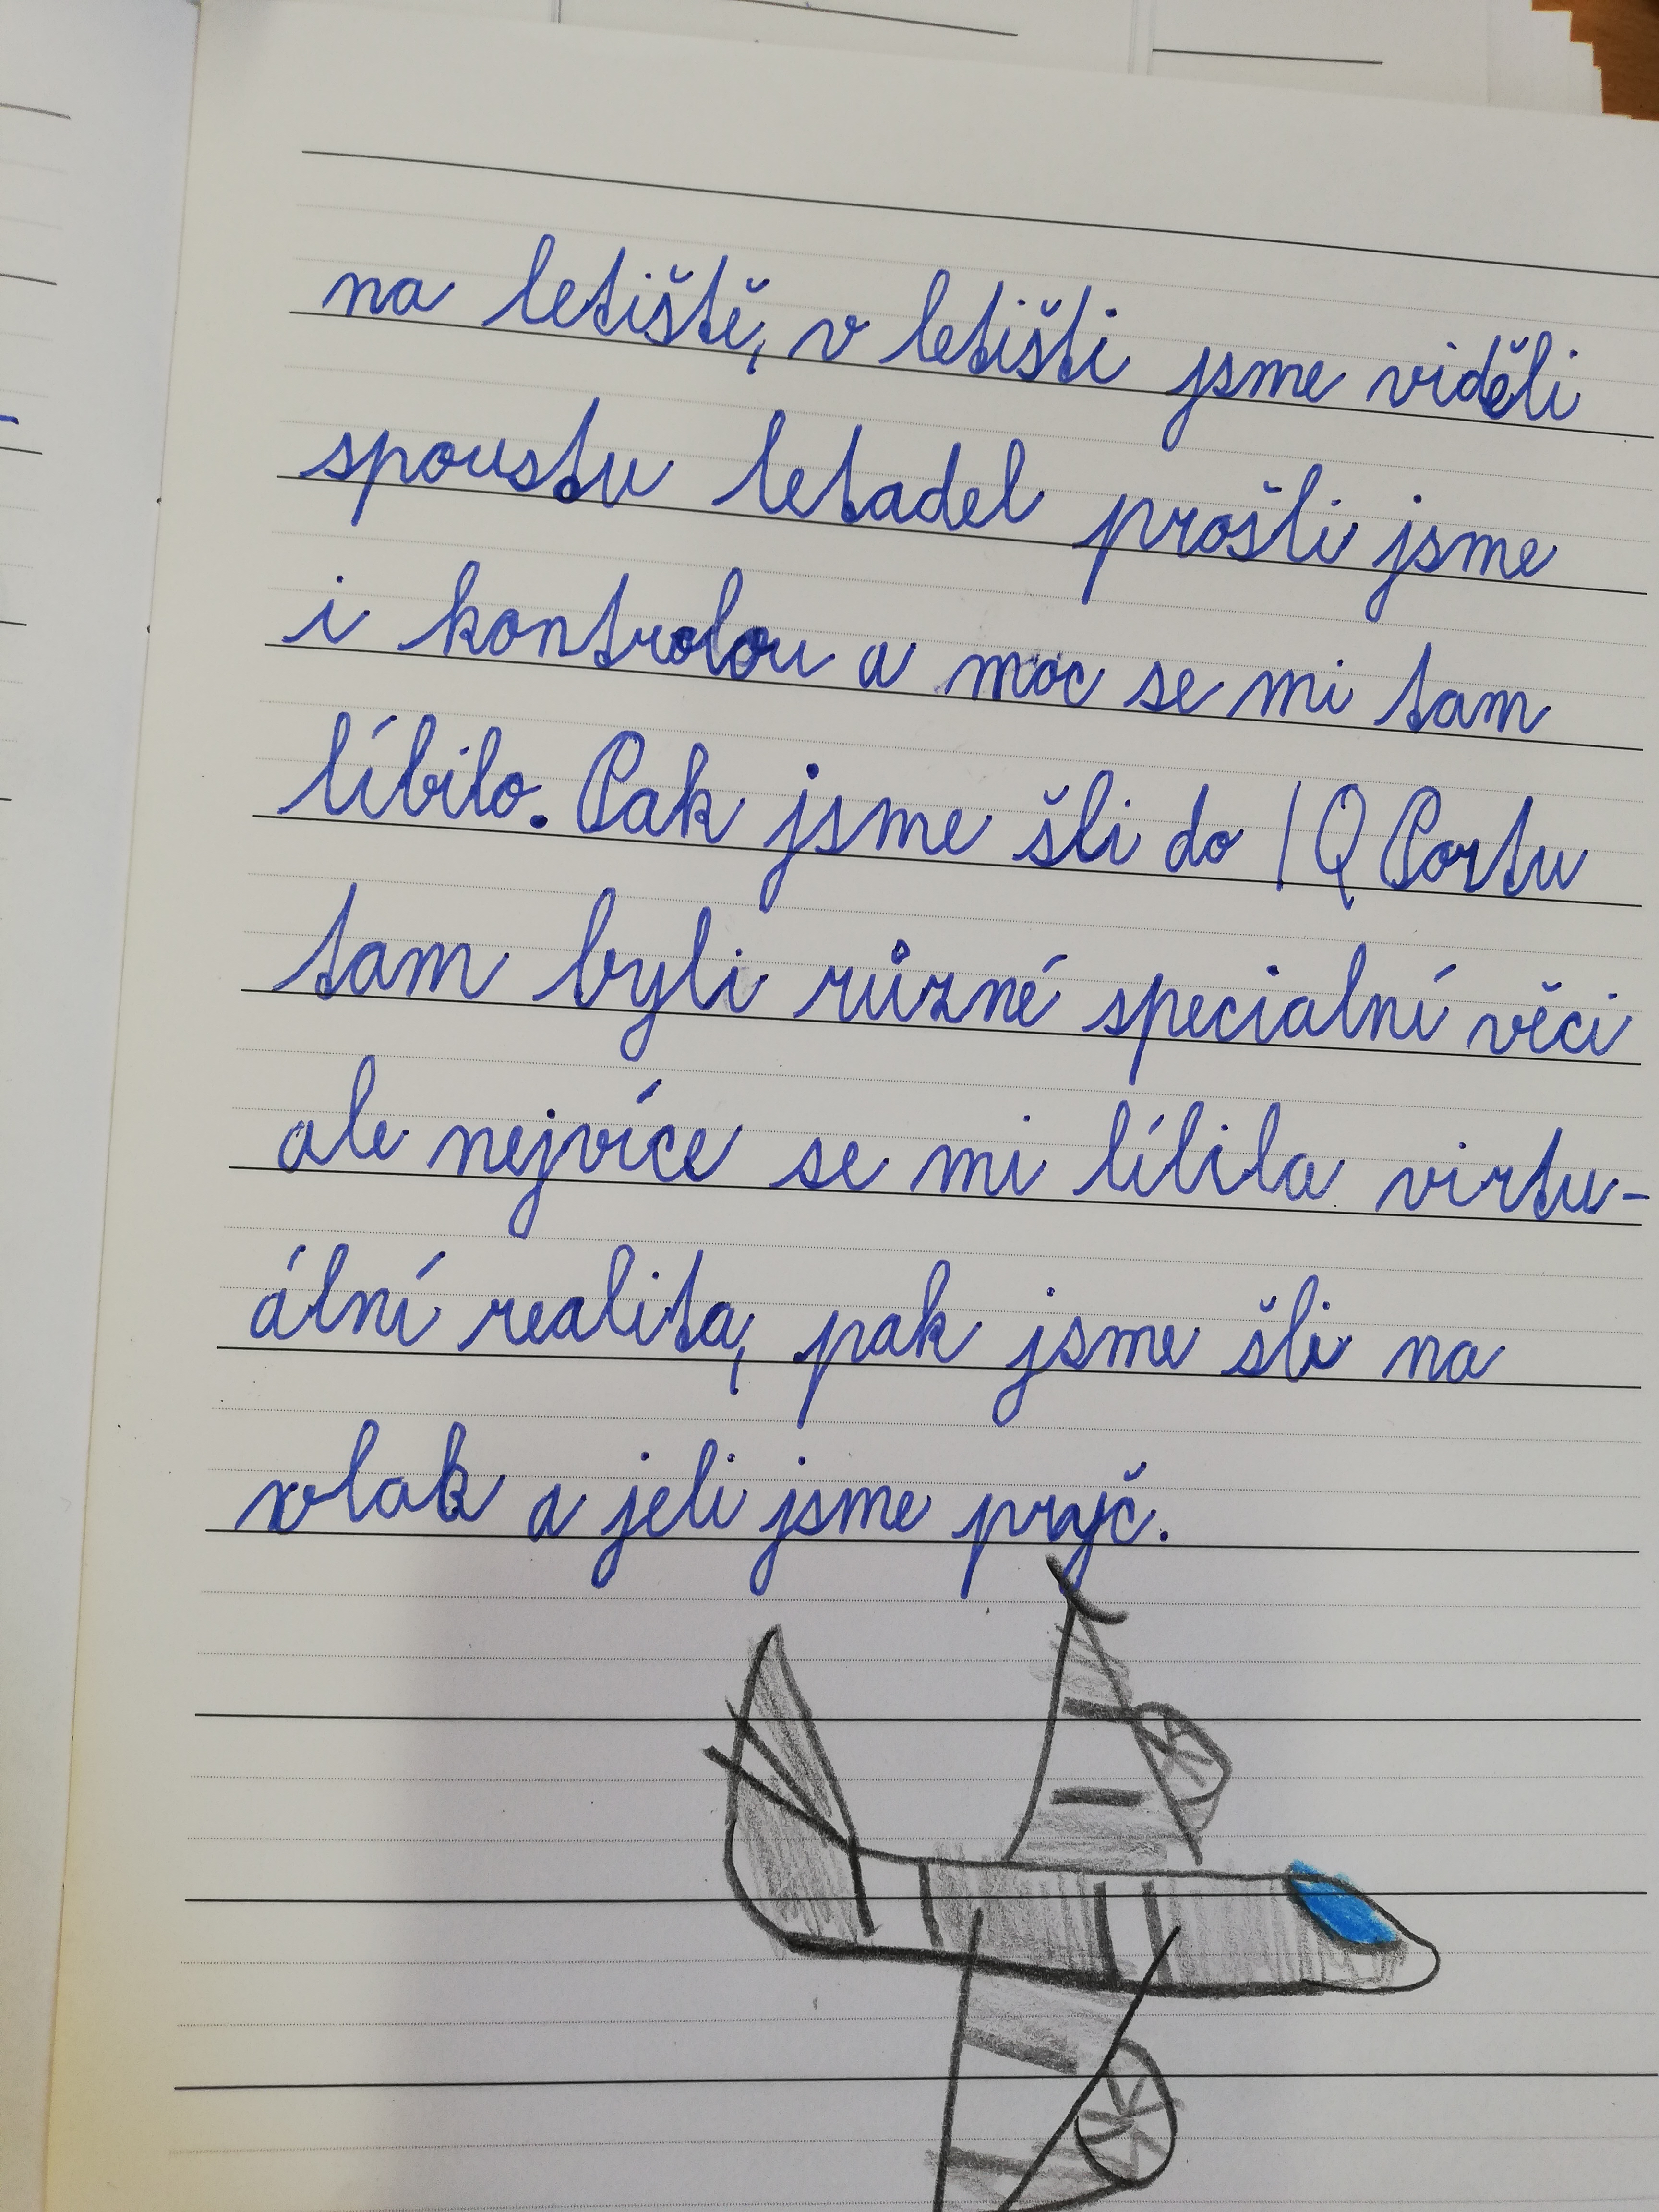 na letiště, v letišti jsme viděli
spoustu letadel prošli jsme
i kontrolou a moc se mi tam
líbilo. Pak jsme šli do IQ Portu
tam byli různé specialní věci
ale nejvíce se mi líbila virtu-
ální realita, pak jsme šli na
vlak a jeli jsme pryč.